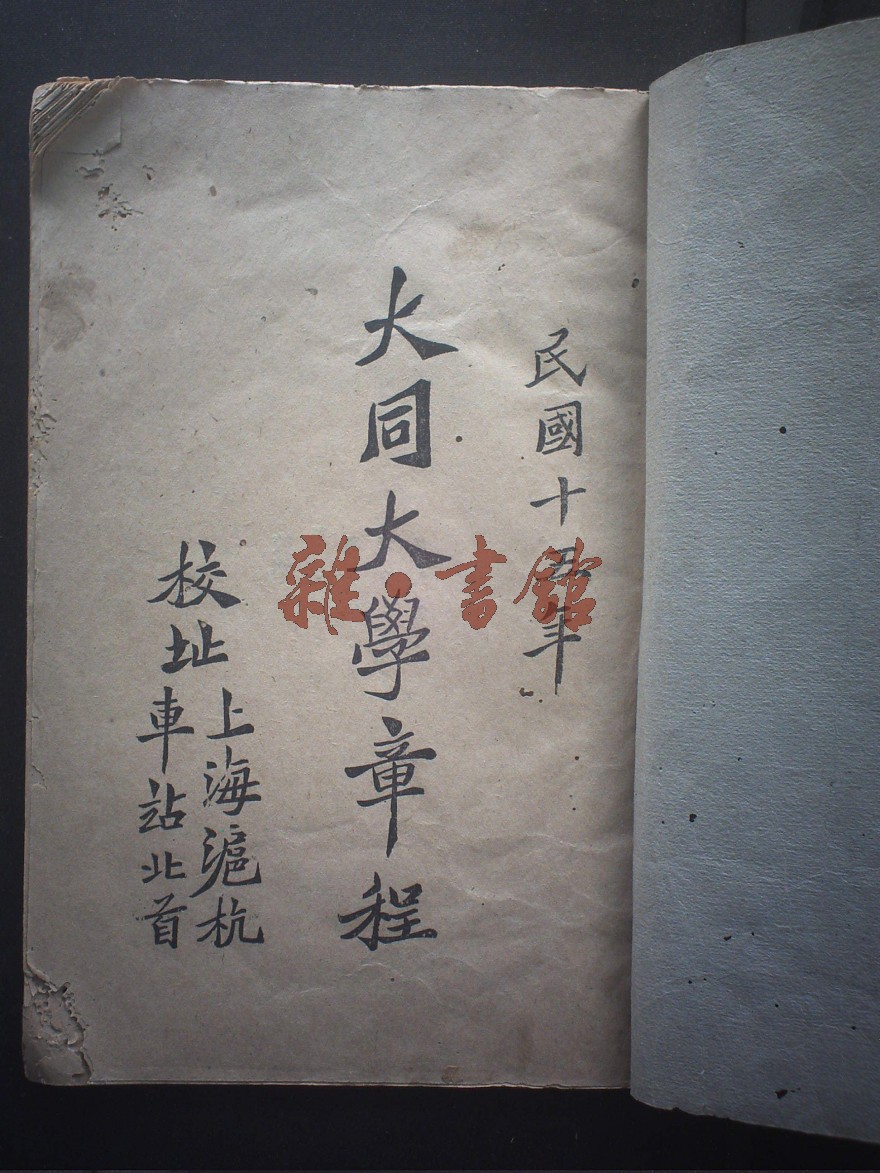 民國十五年
大同大學章程
校址
上海滬杭
車站北首
雜·書館